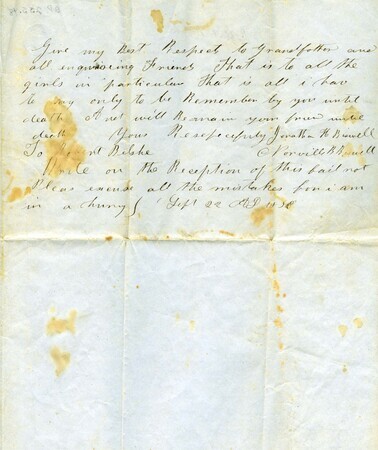 Give my Best Respect to Grandfather and
all enquiring Friends That is to all the
girls in particular That is all i hav
to say only to be Remember by you until
death A not will Remain your frien until
death Yours Respecfuly Jonathan R
To
Write on the Reception of this fail not
Pleas excuse all the mistakes for i am
in a hurry Sept 22 AD